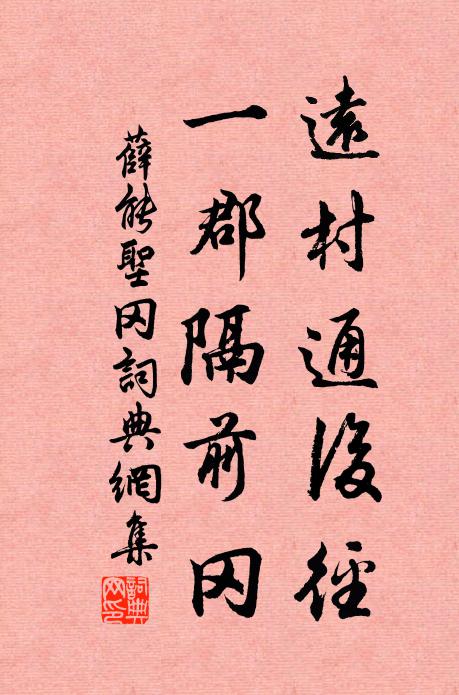 遠村通後徑
一郡隔前冈
薛能聖冈詞典網集
詞典網印